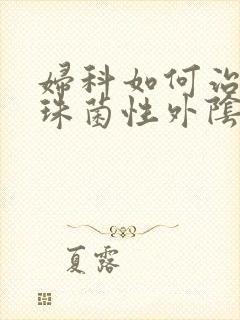 婦科如何治
珠菌性外陰
夏露